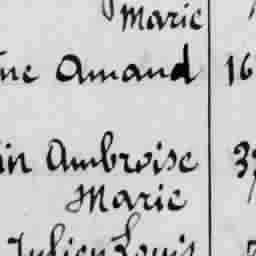 Marie
ne Amand 16
in Ambroise 3
Marie
Julien Louis